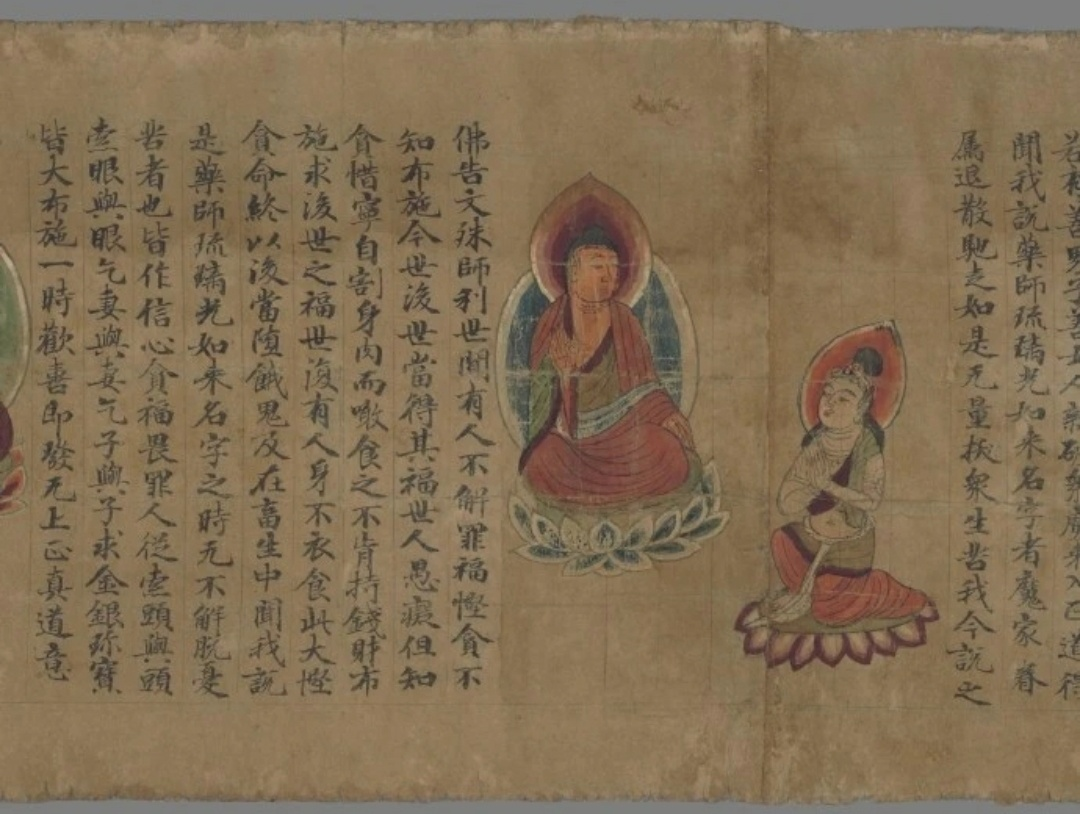 若有善男子善女人 入正道得
聞我説藥師琉璃光如来名字者魔家眷
属退散馳走如是无量拔衆生苦我今説之
佛告文殊師利世間有人不解罪福慳貪不
知布施今世後世當得其福世人愚癡但知
貪惜寧自割身肉而噉食之不肯持錢財布
施求後世之福世復有人身不衣食此大慳
貪命終以後當墮餓鬼及在畜生中聞我説
是藥師琉璃光如来名字之時无不解脱憂
苦者也皆作信心貪福畏罪人從索頭與頭
索眼與眼乞妻與妻乞子與子求金銀珎寳
皆大布施一時歡喜即發无上正真道意